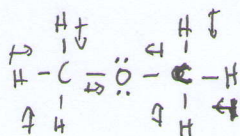 H H
H - C - O - C - H
H H